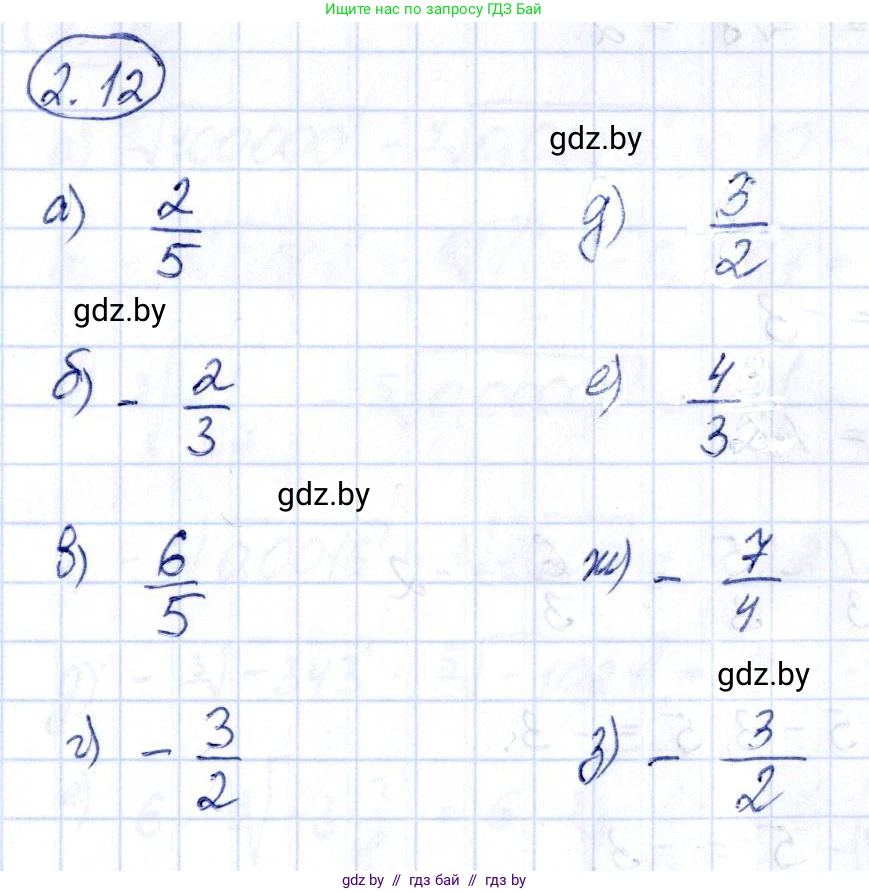 Ищите нас по запросу ГДЗ Бай
2.12
gdz.by
а) 2/5
д) 3/2
gdz.by
б) - 2/3
е) 4/3
gdz.by
в) 6/5
ж) - 7/4
gdz.by
г) - 3/2
з) - 3/2
gdz.by // гдз бай // gdz.by